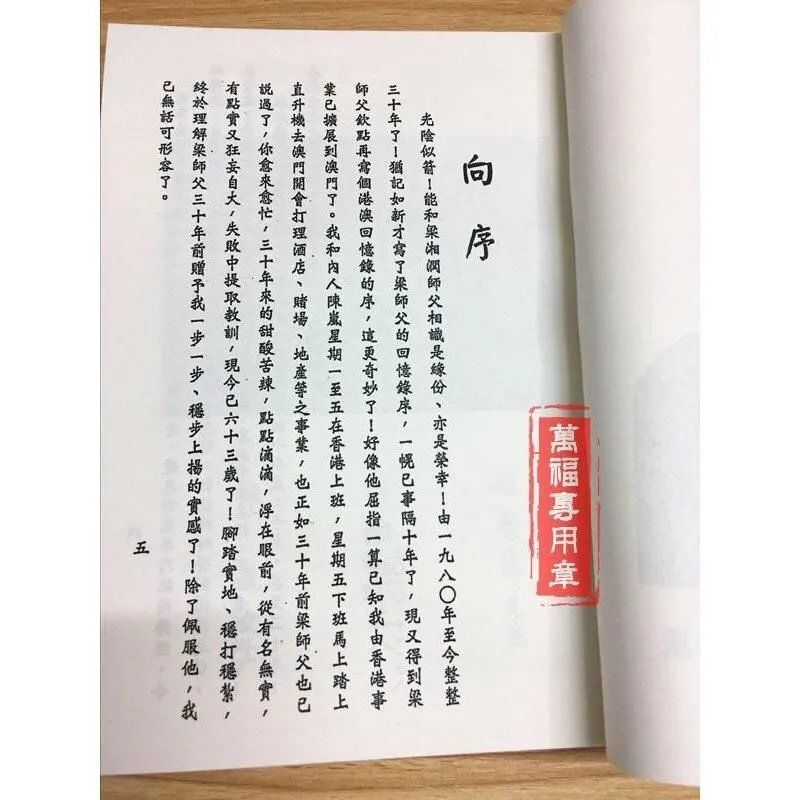 向序
光陰似箭！能和梁湘潤師父相識是緣份、亦是榮幸！由一九八〇年至今整整
三十年了！猶記如新才寫了梁師父的回憶錄序，一幌已事隔十年了，現又得到梁
師父欽點再寫個港澳回憶錄的序，這更奇妙了！好像他屈指一算已知我由香港事
業已擴展到澳門了。我和內人陳嵐星期一至五在香港上班，星期五下班馬上踏上
直升機去澳門開會打理酒店、賭場、地產等之事業，也正如三十年前梁師父也已
說過了，你愈來愈忙，三十年來的甜酸苦辣，點點滴滴，浮在眼前，從有名無實，
有點實又狂妄自大，失敗中提取教訓，現今已六十三歲了！腳踏實地、穩打穩紮，
終於理解梁師父三十年前贈予我一步一步、穩步上揚的實感了！除了佩服他，我
已無話可形容了。
五
萬福專用章